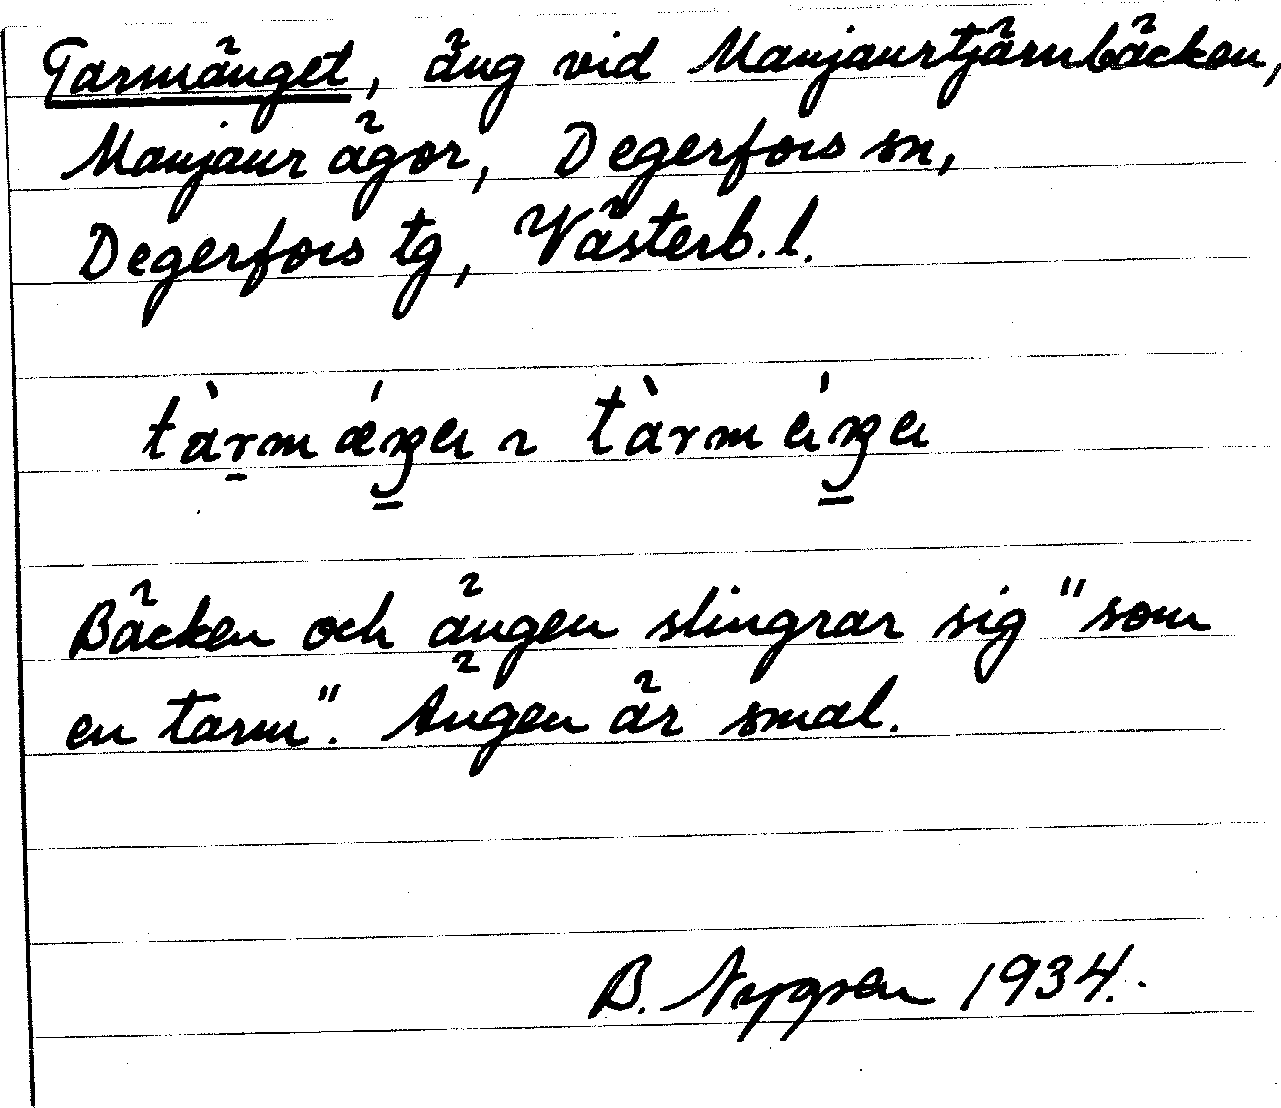 Tarmänget, äng vid Manjaurtjärnbäcken,
Manjaur ägor, Degerfors sn,
Degerfors tg, Västerb. l.
Bäcken och ängen slingrar sig "som
en tarm". Ängen är smal.
B. Nygren 1934.